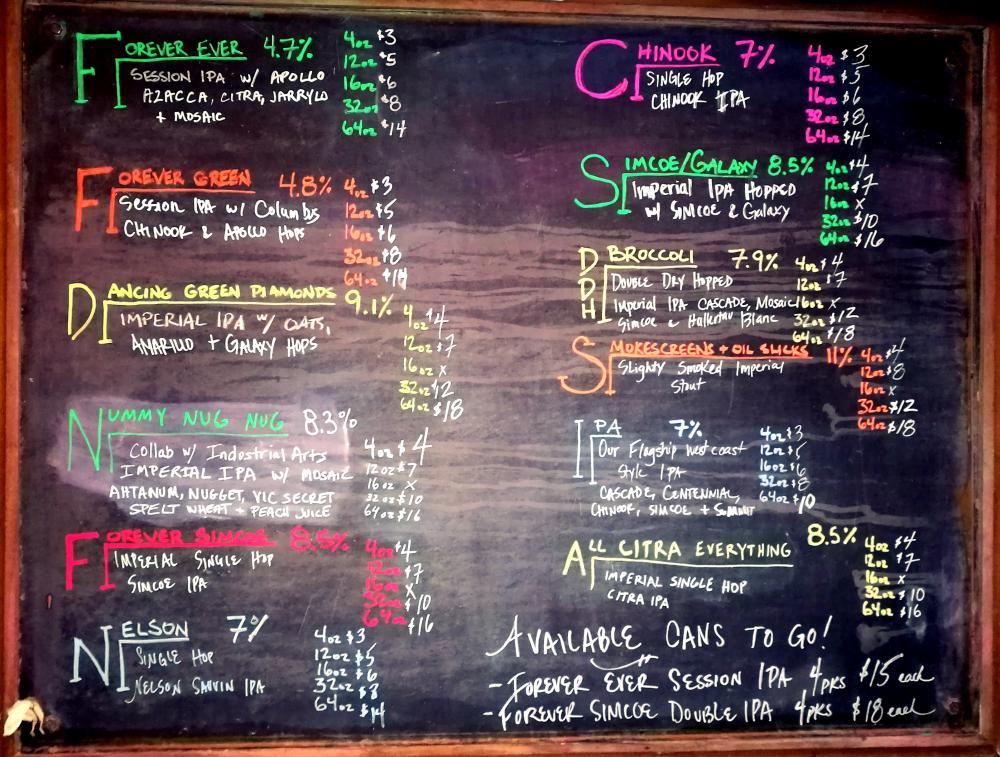 FOREVER EVER 4.7%
SESSION IPA W/ APOLLO
AZACCA, CITRA, JARRYLO
+ MOSAIC
4oz $3
12oz $5
16oz $6
32oz $8
64oz $14
FOREVER GREEN 4.8%
SESSION IPA W/ COLUMBUS
CHINOOK & APOLLO HOPS
4oz $3
12oz $5
16oz $6
32oz $8
64oz $14
DANCING GREEN DIAMONDS 9.1%
IMPERIAL IPA W/ OATS,
AMARILLO + GALAXY HOPS
4oz $4
12oz $7
16oz X
32oz $12
64oz $18
NUMMY NUG NUG 8.3%
Collab w/ Industrial Arts
IMPERIAL IPA W/ MOSAIC
AHTANUM, NUGGET, VIC SECRET
SPELT WHEAT + PEACH JUICE
4oz $4
12oz $7
16oz X
32oz $10
64oz $16
FOREVER SIMCOE 8.5%
IMPERIAL SINGLE HOP
SIMCOE IPA
4oz $4
12oz $7
16oz X
32oz $10
64oz $16
NELSON 7%
SINGLE HOP
NELSON SAUVIN IPA
4oz $3
12oz $5
16oz $6
32oz $8
64oz $14
CHINOOK 7%
SINGLE HOP
CHINOOK IPA
4oz $3
12oz $5
16oz $6
32oz $8
64oz $14
SIMCOE/GALAXY 8.5%
Imperial IPA HOPPED
w/ SIMCOE & Galaxy
4oz $4
12oz $7
16oz X
32oz $10
64oz $16
DDH BROCCOLI 7.9%
DOUBLE DRY HOPPED
Imperial IPA CASCADE, Mosaic
Simcoe & Hallertau Blanc
4oz $4
12oz $7
16oz X
32oz $12
64oz $18
SMOKESCREENS + OIL SLICKS 11%
Slighty Smoked Imperial
Stout
4oz $4
12oz $8
16oz X
32oz $12
64oz $18
IPA 7%
Our Flagship West coast
Style IPA
CASCADE, CENTENNIAL,
CHINOOK, SIMCOE + SUMMIT
4oz $3
12oz
16oz $6
32oz $8
64oz $10
ALL CITRA EVERYTHING 8.5%
IMPERIAL SINGLE HOP
CITRA IPA
4oz $4
12oz $7
16oz X
32oz $10
64oz $16
AVAILABLE CANS TO GO!
- FOREVER EVER SESSION IPA 4pks $15 each
- FOREVER SIMCOE DOUBLE IPA 4pks $18 each